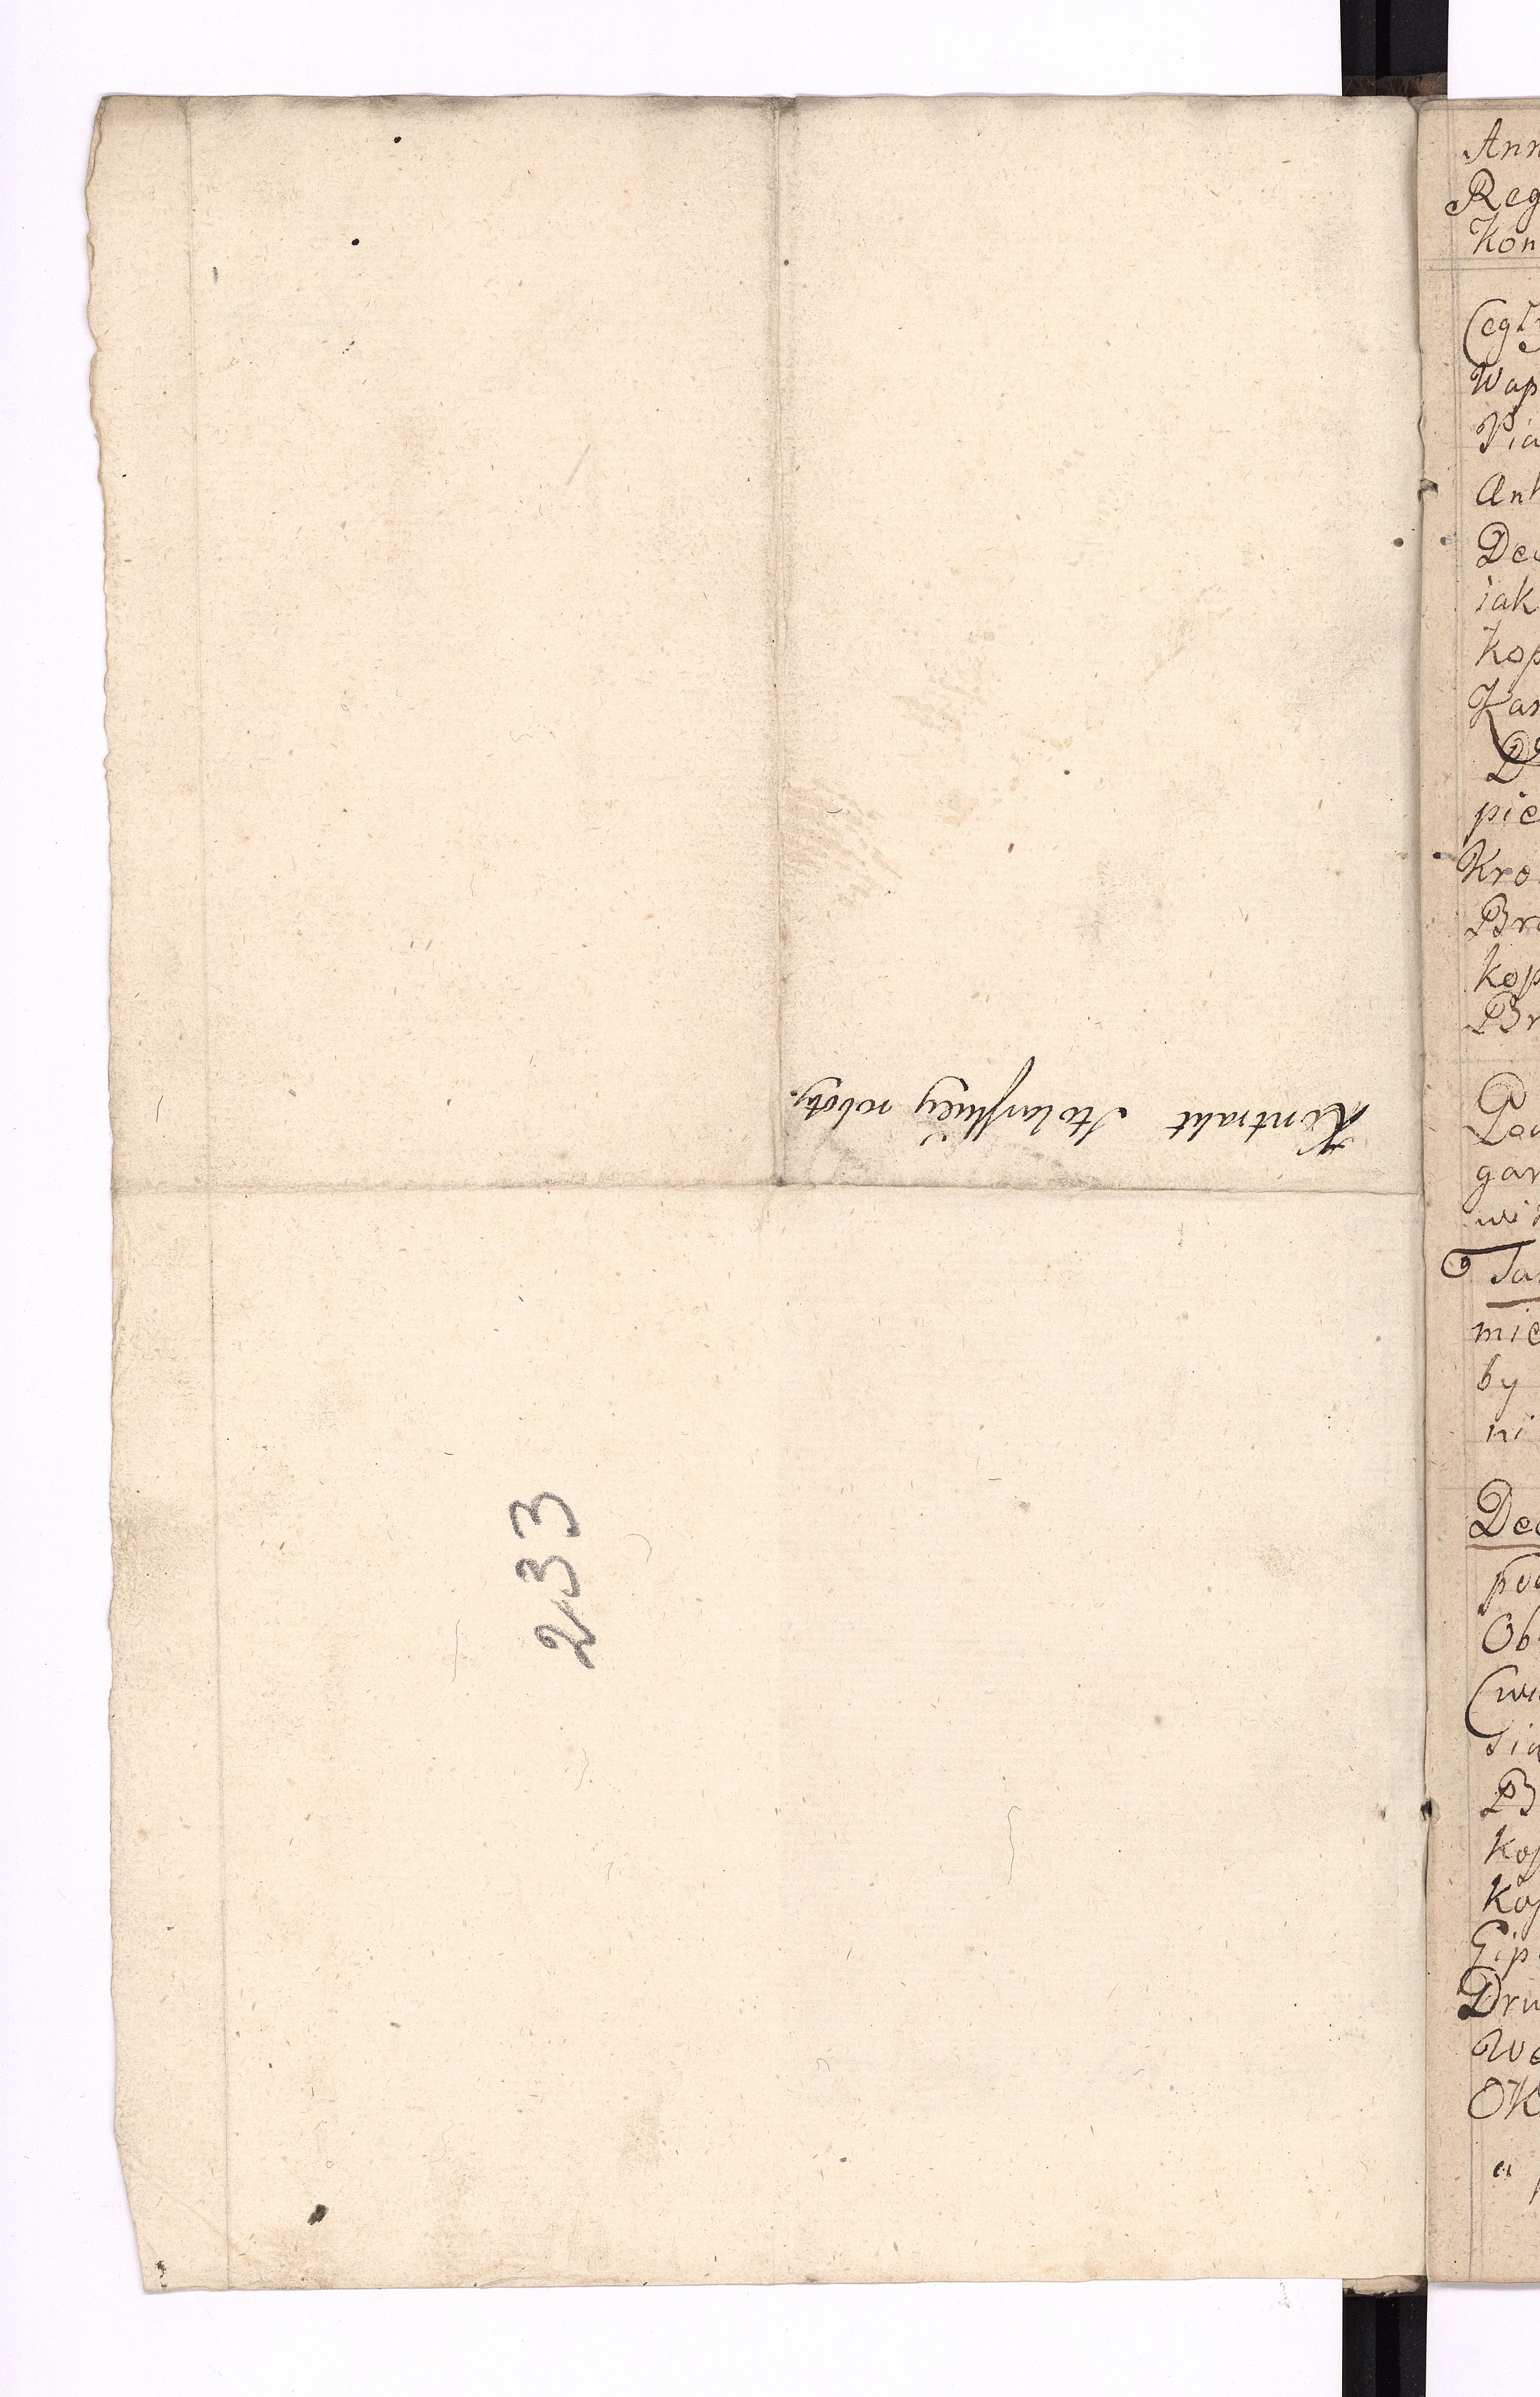 Kontrakt Stolarskiey roboty.
233
Ann
Reg
Kon
Cegły
Wap
Pia
Ant
Dec
iak
kop
Kas
pie
Kro
Bra
kop
Br
gar
Ta
mie
by
ni
Dec
pod
Ob
sia
B
kop
kop
Gip
Dru
We
OK
a p